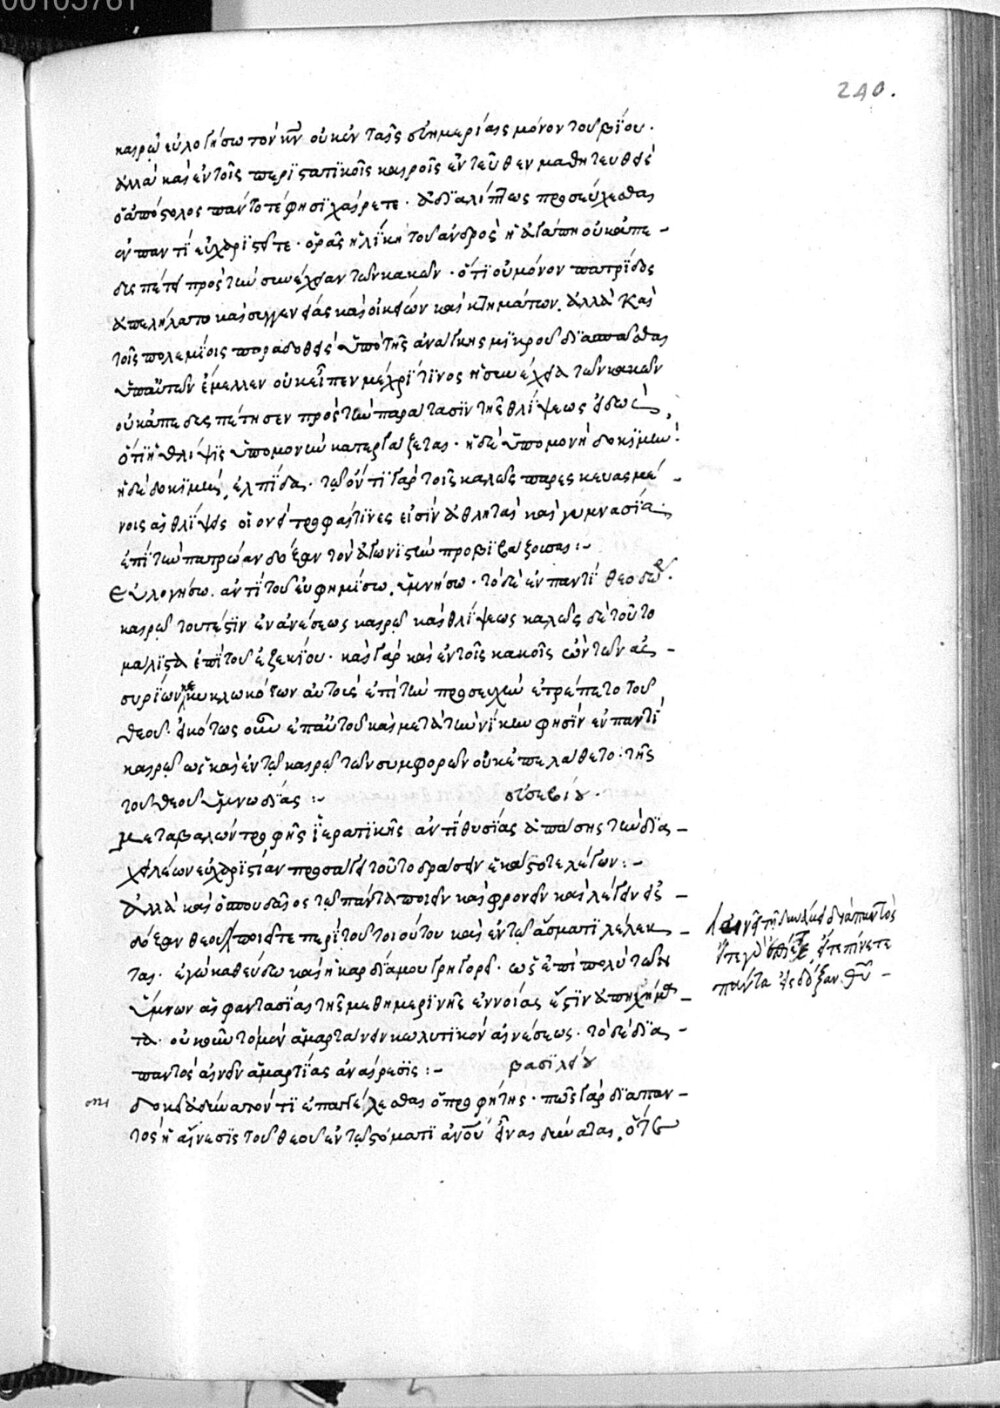 00105761
240.
καιρῷ εὐλογήσω τὸν κν οὐκ ἐν ταῖς εὐημερίαις μόνον τοῦ βίου·
ἀλλὰ καὶ ἐν τοῖς περιστατικοῖς καιροῖς ἐντεῦθεν μαθητευθεὶς
ὁ ἀπόστολος πάντοτέ φησι χαίρετε· ἀδιαλείπτως προσεύχεσθαι
ἐν παντὶ εὐχαριστεῖτε· ὁρᾷς ἡλίκη τοῦ ἀνδρὸς ἡ ἀγάπη οὐκ ἀπε-
δυσπέτει πρὸς τὴν συνέχειαν τῶν κακῶν· ὅτι οὐ μόνον πατρίδος
ἀπελήλατο καὶ συγγενείας καὶ οἰκείων καὶ κτημάτων. ἀλλὰ καὶ
τοῖς πολεμίοις παραδοθεὶς ὑπὸ τῆς ἀνάγκης μικροῦ διασπᾶσθαι
ὑπ' αὐτῶν ἔμελλεν οὐκ εἶπεν μέχρι τίνος ἡ συνέχεια τῶν κακῶν
οὐκ ἀπεδυσπέτησεν πρὸς τὴν παράτασιν τῆς θλίψεως εἰδὼς,
ὅτι ἡ θλίψις ὑπομονὴν κατεργάζεται· ἡ δὲ ὑπομονὴ δοκιμὴν·
ἡ δὲ δοκιμὴ, ἐλπίδα· τῷ ὄντι γὰρ τοῖς καλῶς παρεσκευασμέ-
νοις αἱ θλίψεις οἱονεὶ τροφαί τινες εἰσὶν ἀθληταὶ καὶ γυμνασία,
ἐπὶ τὴν πατρῴαν δόξαν τὸν ἀγωνιστὴν προβιβάζουσαι :-
Εὐλογήσω. ἀντὶ τοῦ εὐφημίσω, ὑμνήσω· τὸ δὲ ἐν παντὶ θεοδω·
καιρῷ τουτέστιν ἐν ἀνέσεως καιρῷ καὶ θλίψεως καλῶς δὲ τοῦτο
μάλιστα ἐπὶ τοῦ ἐζεκίου· καὶ γὰρ καὶ ἐν τοῖς κακοῖς ὢν τῶν ἀσ-
συρίων κεκυκλωκότων αὐτοὺς ἐπὶ τὴν προσευχὴν ἐτρέπετο τοῦ
θεοῦ· εἰκότως οὖν ἐπ' αὐτοῦ καὶ μετὰ τὴν νίκην φησὶν ἐν παντὶ
καιρῷ ὡς καὶ ἐν τῷ καιρῷ τῶν συμφορῶν οὐκ ἐπελάθετο· τῆς
τοῦ θεοῦ ὑμνωδίας :- εὐσεβίου·
Μεταβαλὼν τροφῆς ἱερατικῆς ἀντὶ θυσίας ἁπάσης τὴν διὰ-
χειλέων εὐχαριστίαν προσάγει τοῦτο δράσειν ἑκάστοτε λέγων :-
Ἀλλὰ καὶ ὁ σπουδαῖος τῷ πάντα ποιεῖν καὶ φρονεῖν καὶ λέγειν εἰς-
δόξαν θεοῦ ποιεῖτε περὶ τοῦ τοιούτου καὶ ἐν τῷ ᾄσματι λέλεκ-
ται· ἐγὼ καθεύδω καὶ ἡ καρδία μου γρηγορεῖ· ὡς ἐπιπολὺ τῶν
ὕμνων αἱ φαντασίαι τῆς μεθημερινῆς ἐννοίας εἰσὶν ἀπηχήμα-
τα· οὐκοῦν τὸ μὲν ἁμαρτάνειν κωλυτικὸν αἰνέσεως· τὸ δὲ διὰ-
παντὸς αἰνεῖν ἁμαρτίας ἀναίρεσις :- βασιλείου
δοκεῖ ἀδύνατόν τι ἐπαγγέλεσθαι ὁ προφήτης· πῶς γὰρ διαπαν-
τὸς ἡ αἴνεσις τοῦ θεοῦ ἐν τῷ στόματι ἀνοῦ εἶναι δύναται, ὅτε
αἰνεῖ διαπαντὸς
εἴτε γὰρ ἐσθίετε, εἴτε πίνετε
πάντα εἰς δόξαν θυ -